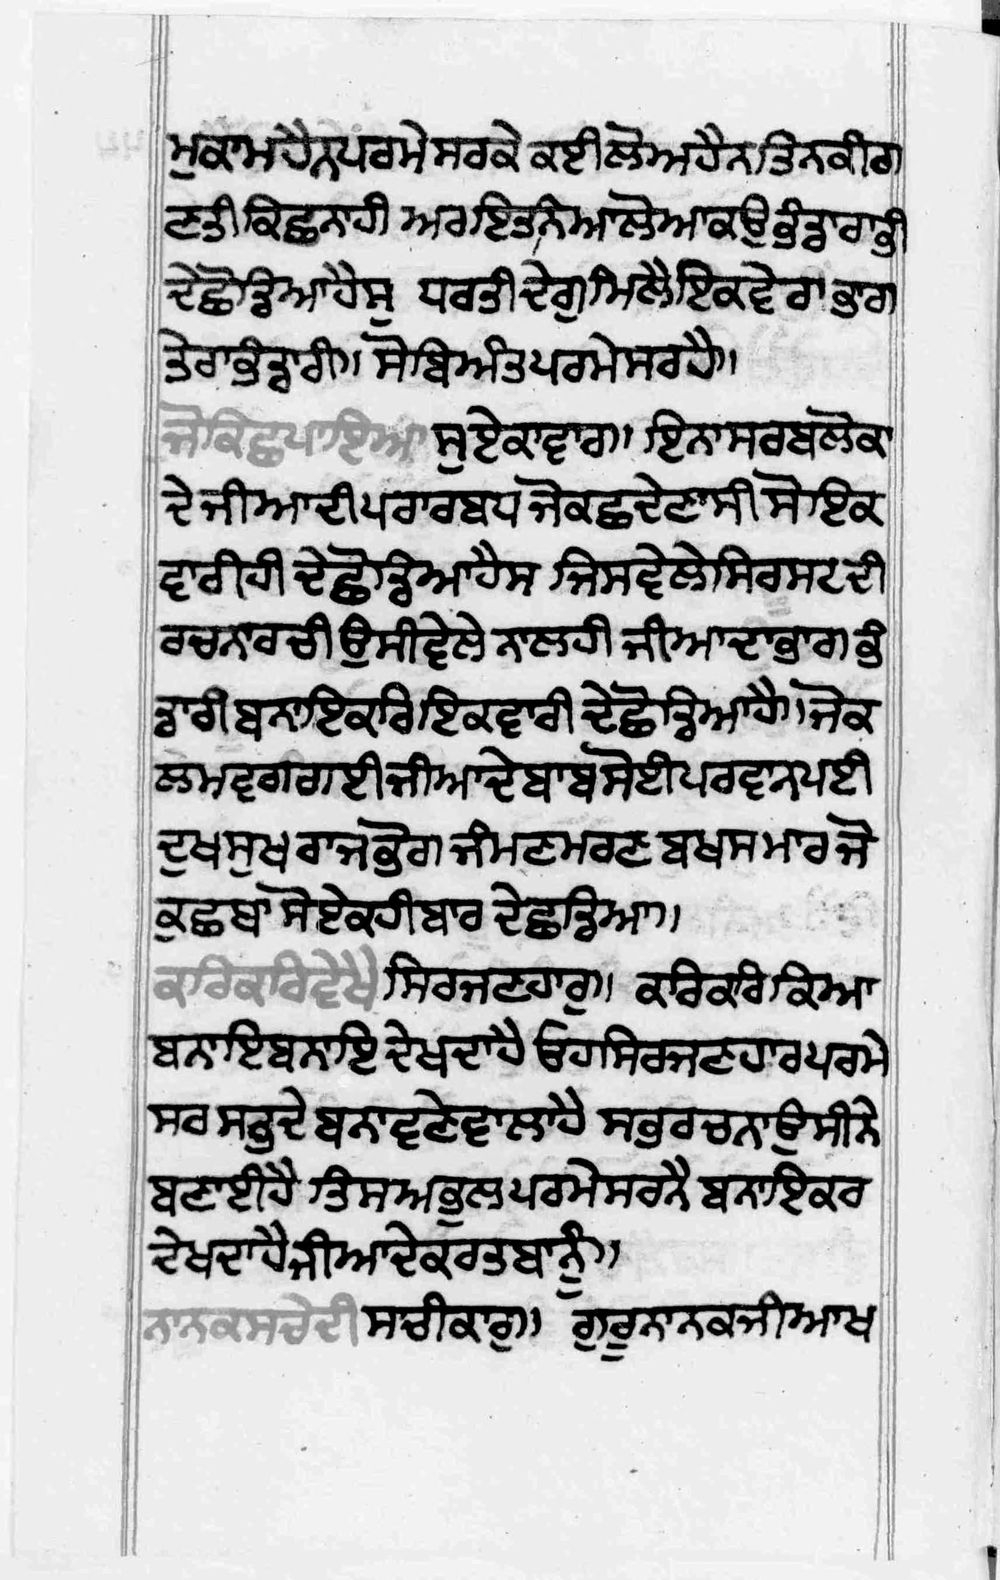 ਮੁਕਾਮ ਹੈਨ ਪਰਮੇਸਰ ਕੇ ਕਈ ਲੋਅ ਹੈਨ ਤਿਨ ਕੀ ਗ
ਣਤੀ ਕਿਛੁ ਨਾਹੀ ਅਰ ਇਤਨਿਆ ਲੋਆ ਕਉ ਭੰਡਾਰਾ ਭੀ
ਦੇ ਛੋਡਿਆ ਹੈਸੁ ਧਰਤੀ ਦੇਗੁ ਮਿਲੈ ਇਕ ਵੇਰਾ ਭਾਗ
ਤੇਰਾ ਭੰਡਾਰੀ॥ ਸੋ ਬਿਅੰਤ ਪਰਮੇਸਰ ਹੈ॥
ਜੋ ਕਿਛੁ ਪਾਇਆ ਸੁ ਏਕਾ ਵਾਰ॥ ਇਨਾ ਸਰਬ ਲੋਕਾ
ਦੇ ਜੀਆ ਦੀ ਪਰਾਰਬਧ ਜੋ ਕਛੁ ਦੇਣਾ ਸੀ ਸੋ ਇਕ
ਵਾਰੀ ਹੀ ਦੇ ਛੋਡਿਆ ਹੈਸ ਜਿਸ ਵੇਲੇ ਸਿਰਸਟ ਦੀ
ਰਚਨਾ ਰਚੀ ਉਸੀ ਵੇਲੇ ਨਾਲ ਹੀ ਜੀਆ ਦਾ ਭਾਗ ਭੰ
ਡਾਰੀ ਬਨਾਇ ਕਰਿ ਇਕ ਵਾਰੀ ਦੇ ਛੋਡਿਆ ਹੈ॥ ਜੋ ਕ
ਲਮ ਵਗ ਗਈ ਜੀਆ ਦੇ ਬਾਬ ਸੋਈ ਪਰਵਾਨ ਪਈ
ਦੁਖ ਸੁਖ ਰਾਜ ਭੋਗ ਜੰਮਣ ਮਰਣ ਬਖਸ ਮਾਰ ਜੋ
ਕੁਛ ਥਾ ਸੋ ਏਕ ਹੀ ਬਾਰ ਦੇ ਛਡਿਆ॥
ਕਰਿ ਕਰਿ ਵੇਖੈ ਸਿਰਜਣਹਾਰੁ॥ ਕਰਿ ਕਰਿ ਕਿਆ
ਬਨਾਇ ਬਨਾਇ ਦੇਖਦਾ ਹੈ ਓਹ ਸਿਰਜਣਹਾਰ ਪਰਮੇ
ਸਰ ਸਭੁ ਦੇ ਬਨਾਵਣੇ ਵਾਲਾ ਹੈ ਸਭੁ ਰਚਨਾ ਉਸੀ ਨੇ
ਬਣਾਈ ਹੈ ਤਿਸ ਅਭੁਲ ਪਰਮੇਸਰ ਨੈ ਬਨਾਇ ਕਰ
ਦੇਖਦਾ ਹੈ ਜੀਆ ਦੇ ਕਰਤਬਾ ਨੂੰ॥
ਨਾਨਕ ਸਚੇ ਦੀ ਸਚੀ ਕਾਰੁ॥ ਗੁਰੂ ਨਾਨਕ ਜੀ ਆਖ